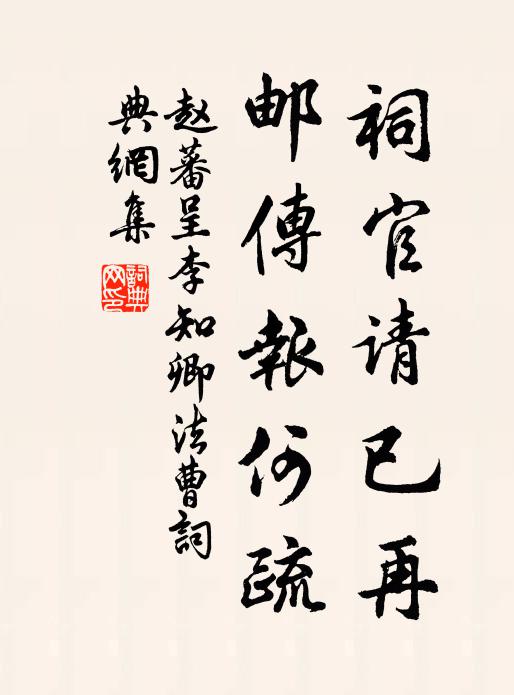 祠官请已再
邮傳報何疏
赵蕃呈李知卿法曹詞
典網集
詞典網印